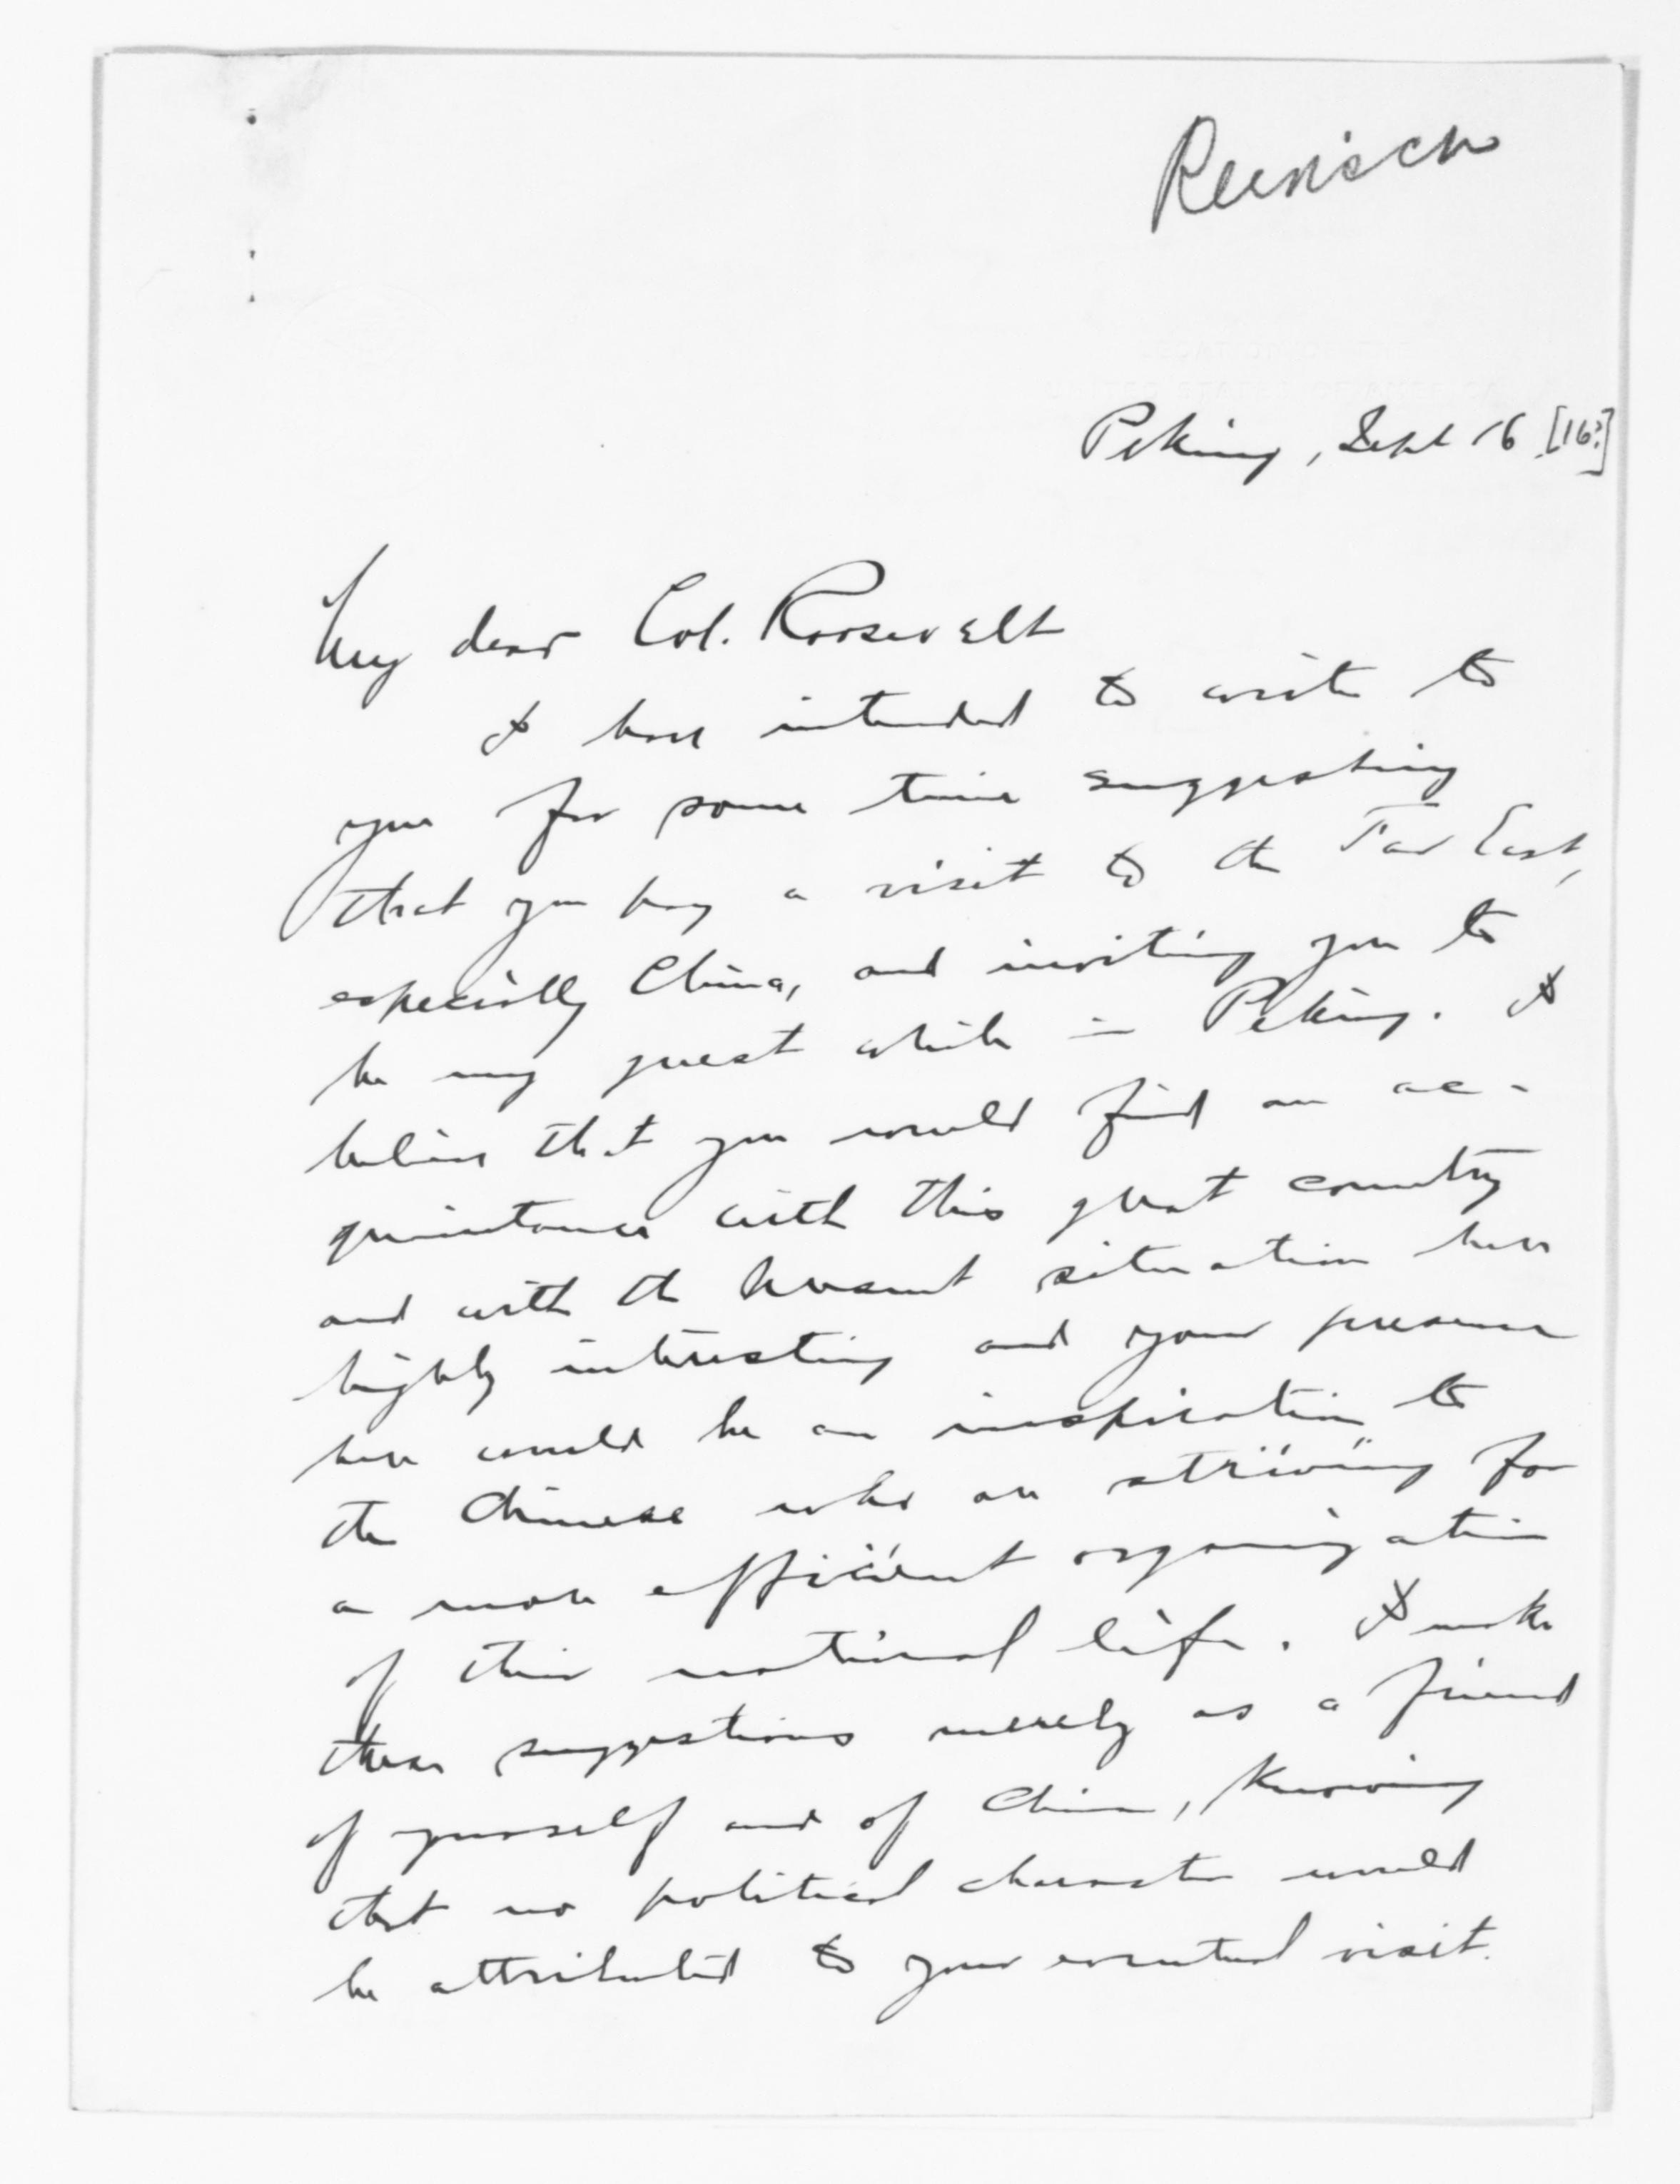 Reinsch
Peking, Sept 16 [16?]
My dear Col. Roosevelt
I have intended to write to
you for some time suggesting
that you pay a visit to the Far East,
especially China, and inviting you to
be my guest while in Peking. I
believe that you would find an ac-
quaintance with this great country
and with the present situation here
highly interesting and your presence
here would be an inspiration to
the Chinese who are striving for
a more efficient organization
of their national life. I make
these suggestions merely as a friend
of yourself and of China, knowing
that no political character would
be attributed to your eventual visit.